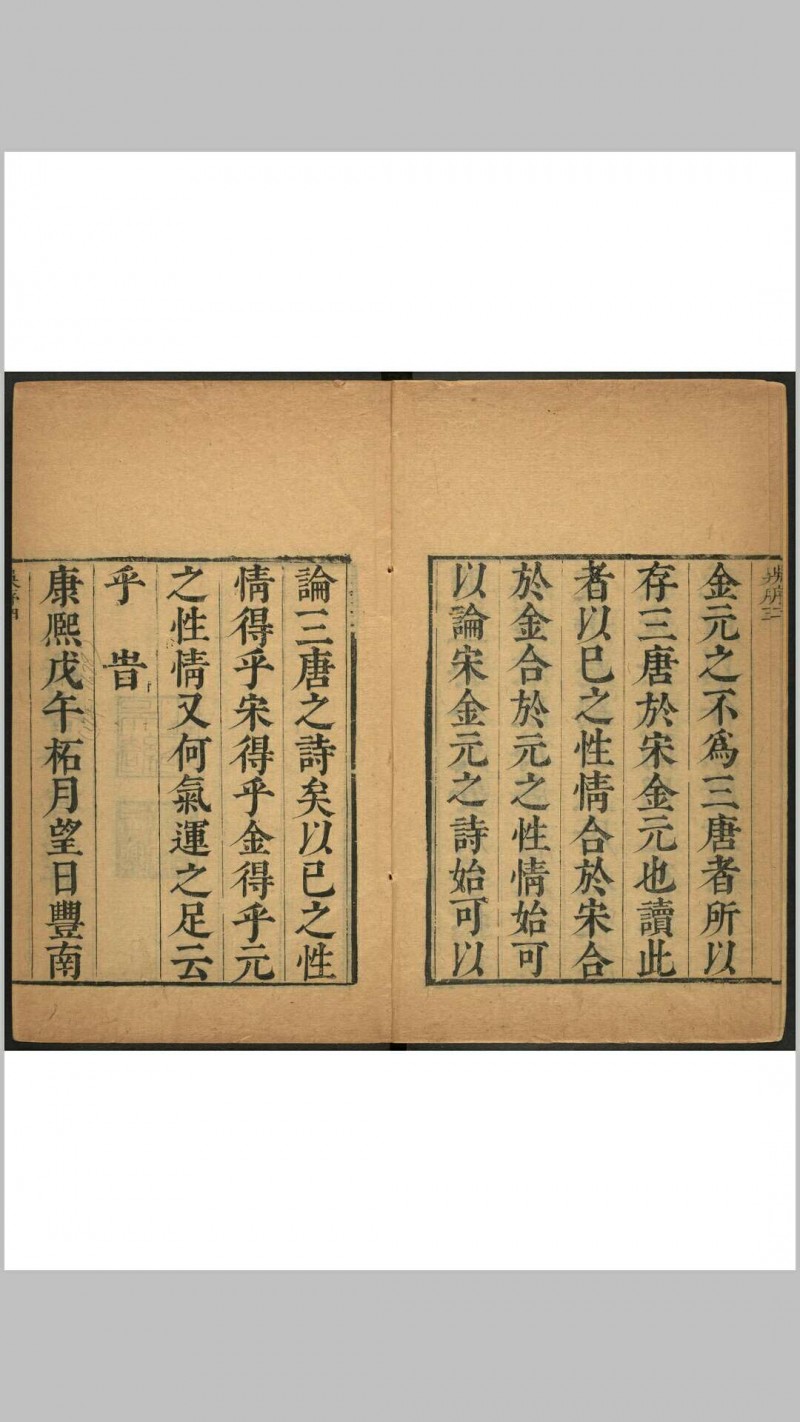 金元之不爲三唐者所以
存三唐於宋金元也讀此
者以巳之性情合於宋合
於金合於元之性情始可
以論宋金元之詩始可以
論三唐之詩矣以巳之性
情得乎宋得乎金得乎元
之性情又何氣運之足云
乎 旹
康熈戊午柘月望日豐南